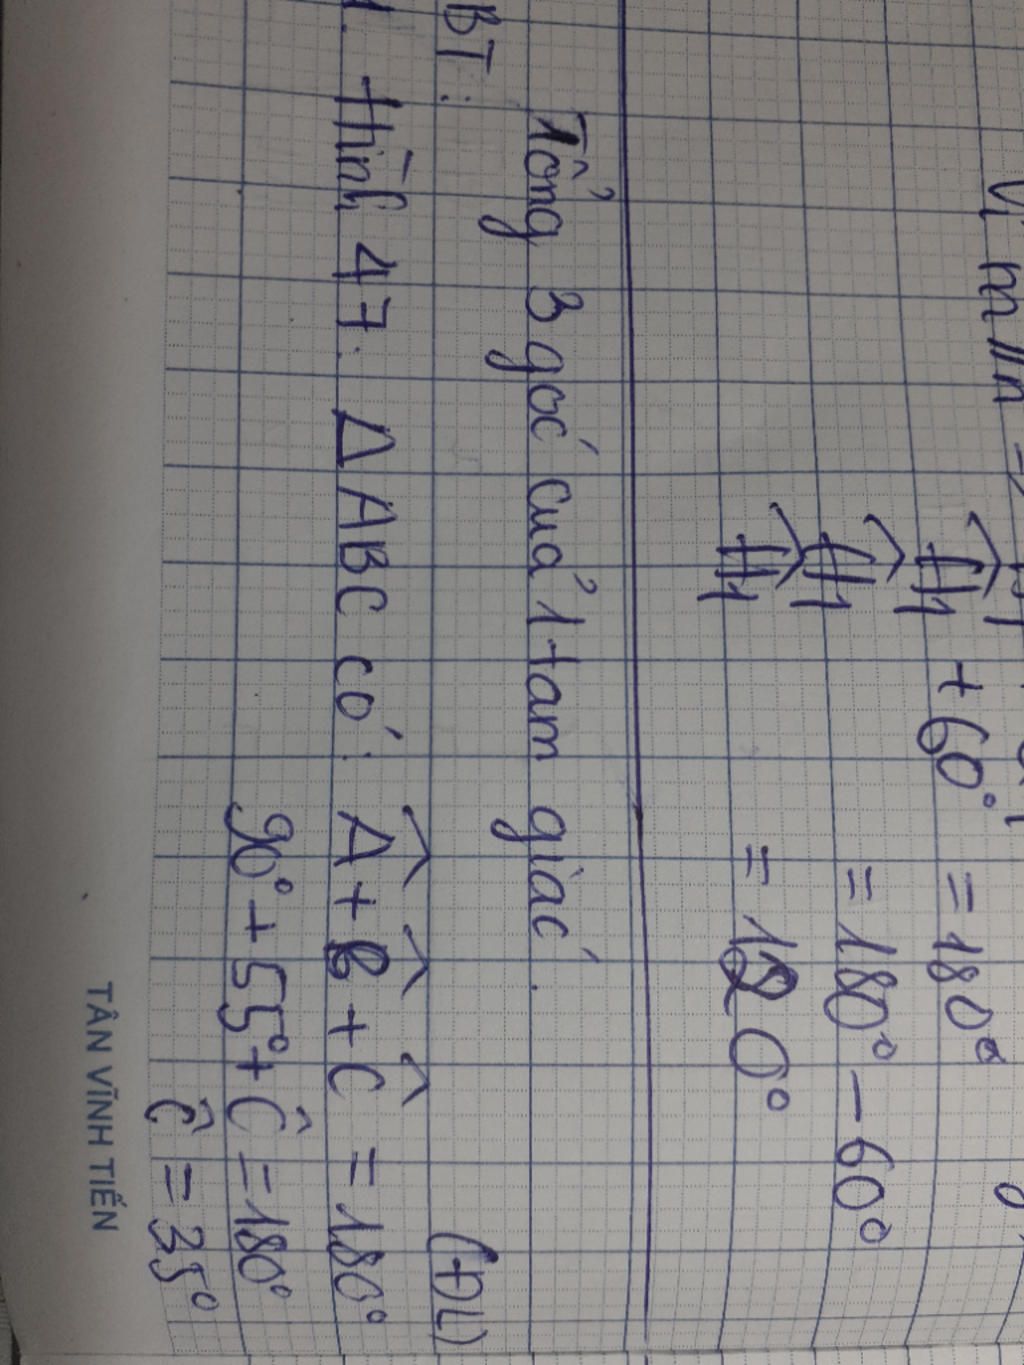 Vì m // n
+ 60° = 180°
= 180° - 60°
= 120°
Tổng 3 góc của 1 tam giác.
BT: (ĐL)
1. Hình 47. Δ ABC có: Â + B̂ + Ĉ = 180°
90° + 55° + Ĉ = 180°
Ĉ = 35°
TÂN VĨNH TIẾN